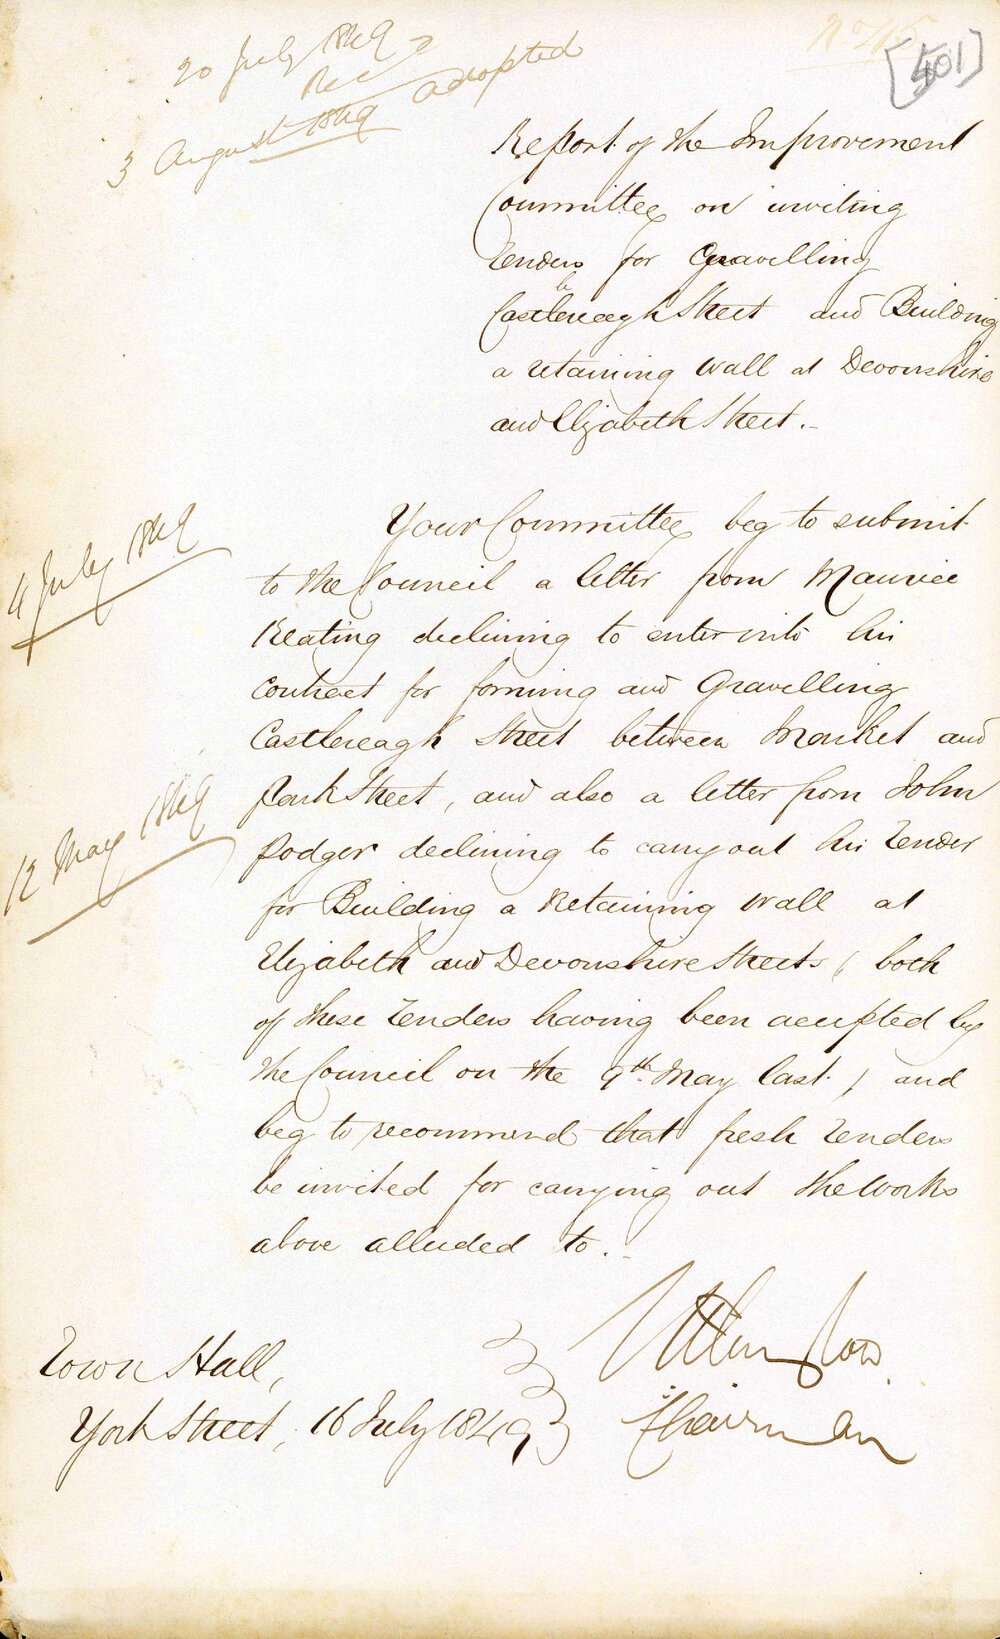 20 July 1849
Rec
3 August 1849 adopted
No 45
[401]
Report of the Improvement
Committee on inviting
Tenders for Gravelling
Castlereagh Street and Building
a retaining wall at Devonshire
and Elizabeth Street.-
Your Committee beg to submit
4 July 1849
to the Council a letter from Maurice
Keating declining to enter into his
contract for forming and Gravelling
Castlereagh Street between Market and
Park Street, and also a letter from John
12 May 1849
Podger declining to carry out his Tender
for Building a Retaining wall at
Elizabeth and Devonshire Streets, (both
of these Tenders having been accepted by
the Council on the 9th May last.) and
beg to recommend that fresh Tenders
be invited for carrying out the works
above alluded to.-
Town Hall,
York Street, 16 July 1849
Chairman